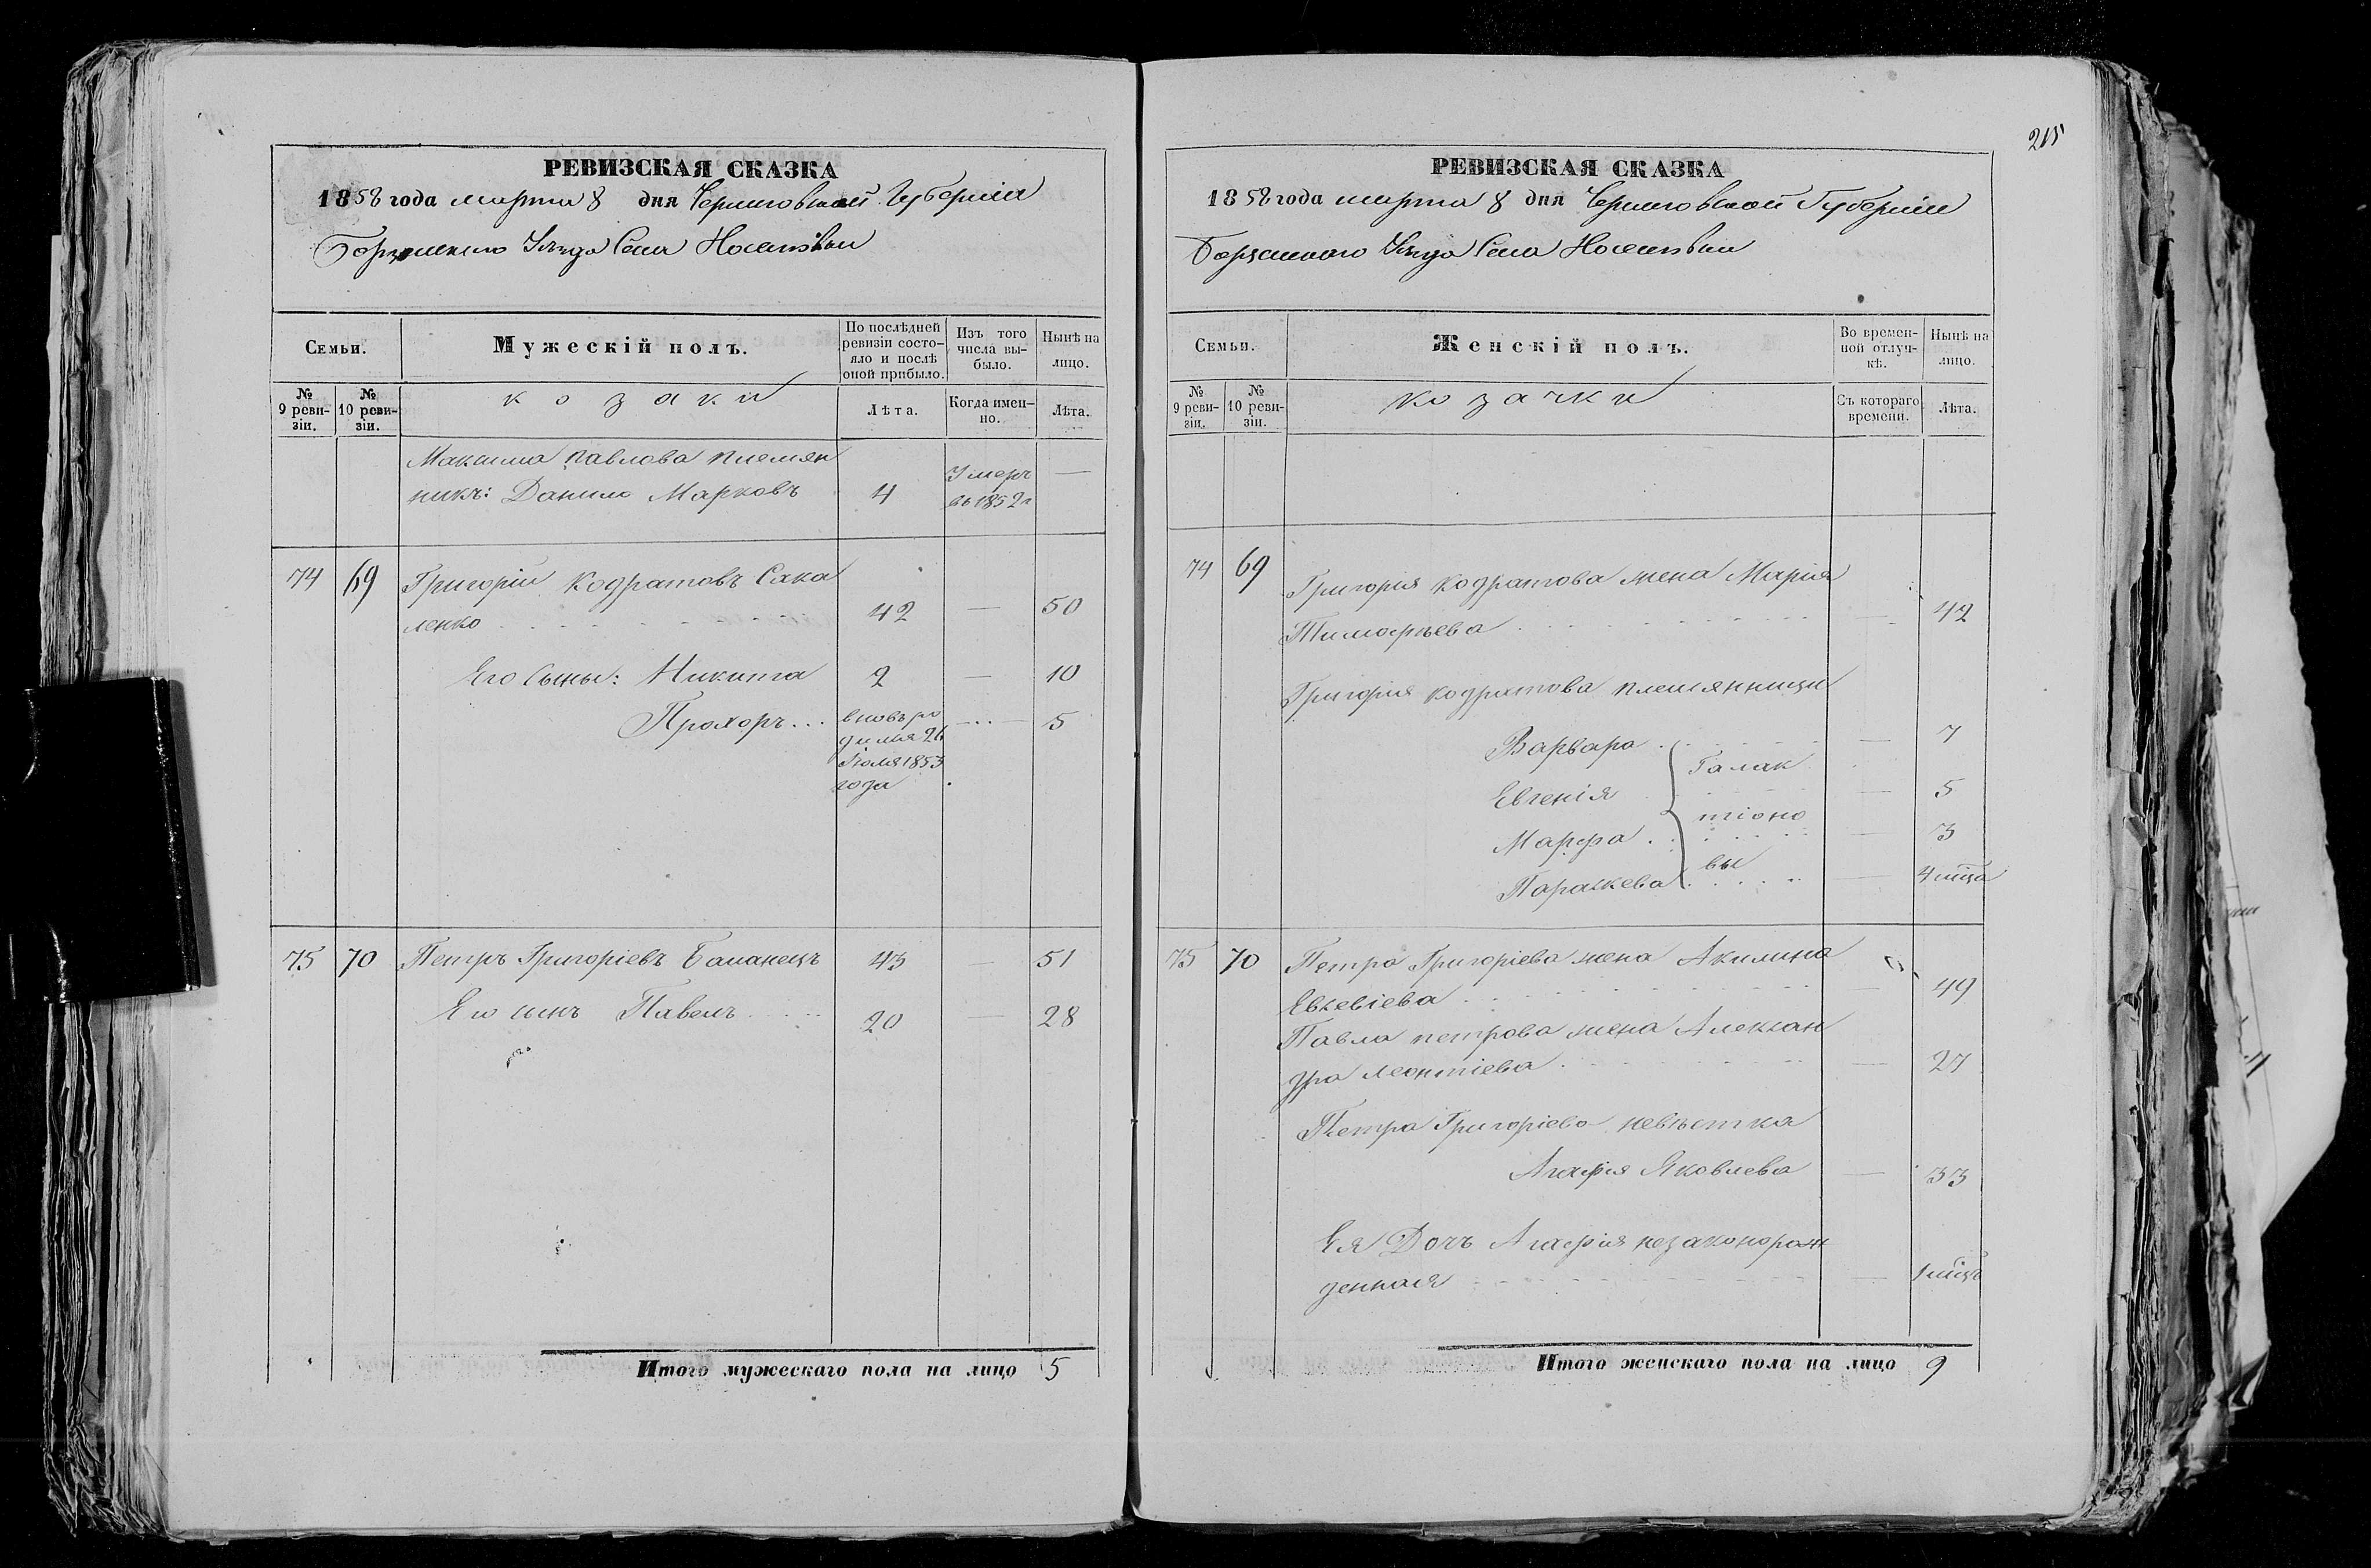 215
РЕВИЗСКАЯ СКАЗКА
1858 года марта 8 дня Черниговской Губернии
Борзенского Уѣзда Села Носелѣвки
Семьи.
Мужескій полъ.
По послѣдней ревизіи состояло и послѣ оной прибыло.
Изъ того числа выбыло.
Нынѣ на лицо.
№ 9 ревизіи.
№ 10 ревизіи.
козаки
Лѣта.
Когда именно.
Лѣта.
Максима Павлова племян
никъ: Данило Марковъ 4 Умеръ въ 1852 г —
74 69 Григорій Кодратовъ Сака
ленко 42 — 50
Его сыны: Никита 2 — 10
Прохоръ... вновь ро — 5
дился 26
Іюля 1853
года
75 70 Петръ Григоріевъ 43 — 51
Его сынъ Павелъ 20 — 28
Итого мужескаго пола на лицо 5
РЕВИЗСКАЯ СКАЗКА
1858 года марта 8 дня Черниговской Губерніи
Борзенского Уѣзда Села Носелѣвки
Семьи.
Женскій полъ.
Во временной отлучкѣ.
Нынѣ на лицо.
№ 9 ревизіи.
№ 10 ревизіи.
козачки
Съ котораго времени.
Лѣта.
74 69 Григорія Кодратова жена Марія
Тимофѣева — 42
Григорія Кодратова племянницы
Варвара — 7
Галак
Евгенія — 5
тіоно
Марфа — 3
вы
Параскева — 4 мца
75 70 Петра Григоріева жена Акилина
Евсевіева — 49
Павла Петрова жена Алексан
дра Леонтіева — 27
Петра Григоріева невѣстка
Агафія Яковлева — 33
Ея Дочь Агафія незаконорож
денная — 1 мцъ
Итого женскаго пола на лицо 9